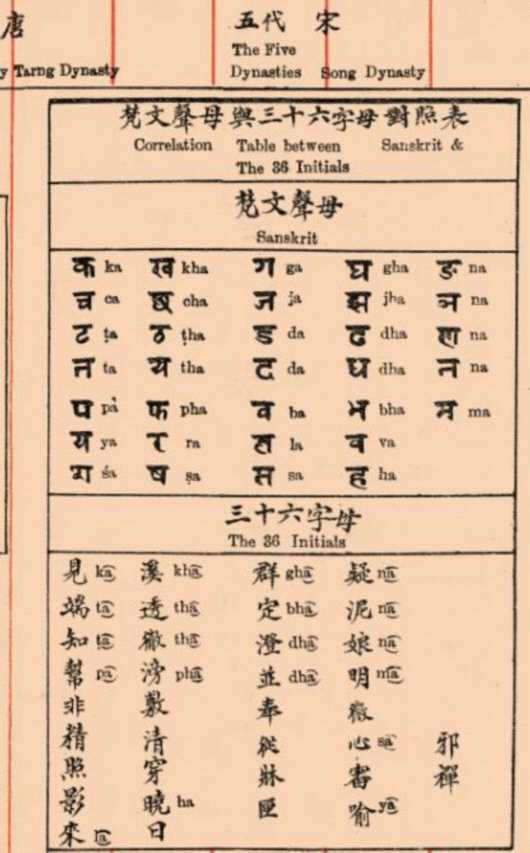 唐 五代 宋
The Five
y Tarng Dynasty Dynasties Song Dynasty
梵文聲母與三十六字母對照表
Correlation Table between Sanskrit &
The 36 Initials
梵文聲母
Sanskrit
क ka ख kha ग ga घ gha ङ na
च ca छ cha ज ja झ jha ञ na
ट ṭa ठ ṭha ड da ढ dha ण na
त ta थ tha द da ध dha न na
प pa फ pha ब ba भ bha म ma
य ya र ra ल la व va
श śa ष ṣa स sa ह ha
三十六字母
The 36 Initials
見 ka 溪 kha 群 gha 疑 na
端 ta 透 tha 定 bha 泥 na
知 ta 徹 tha 澄 dha 娘 na
幫 pa 滂 pha 並 dha 明 ma
非 敷 奉 微
精 清 從 心 sa 邪
照 穿 牀 審 禪
影 曉 ha 匣 喻 ya
來 la 日